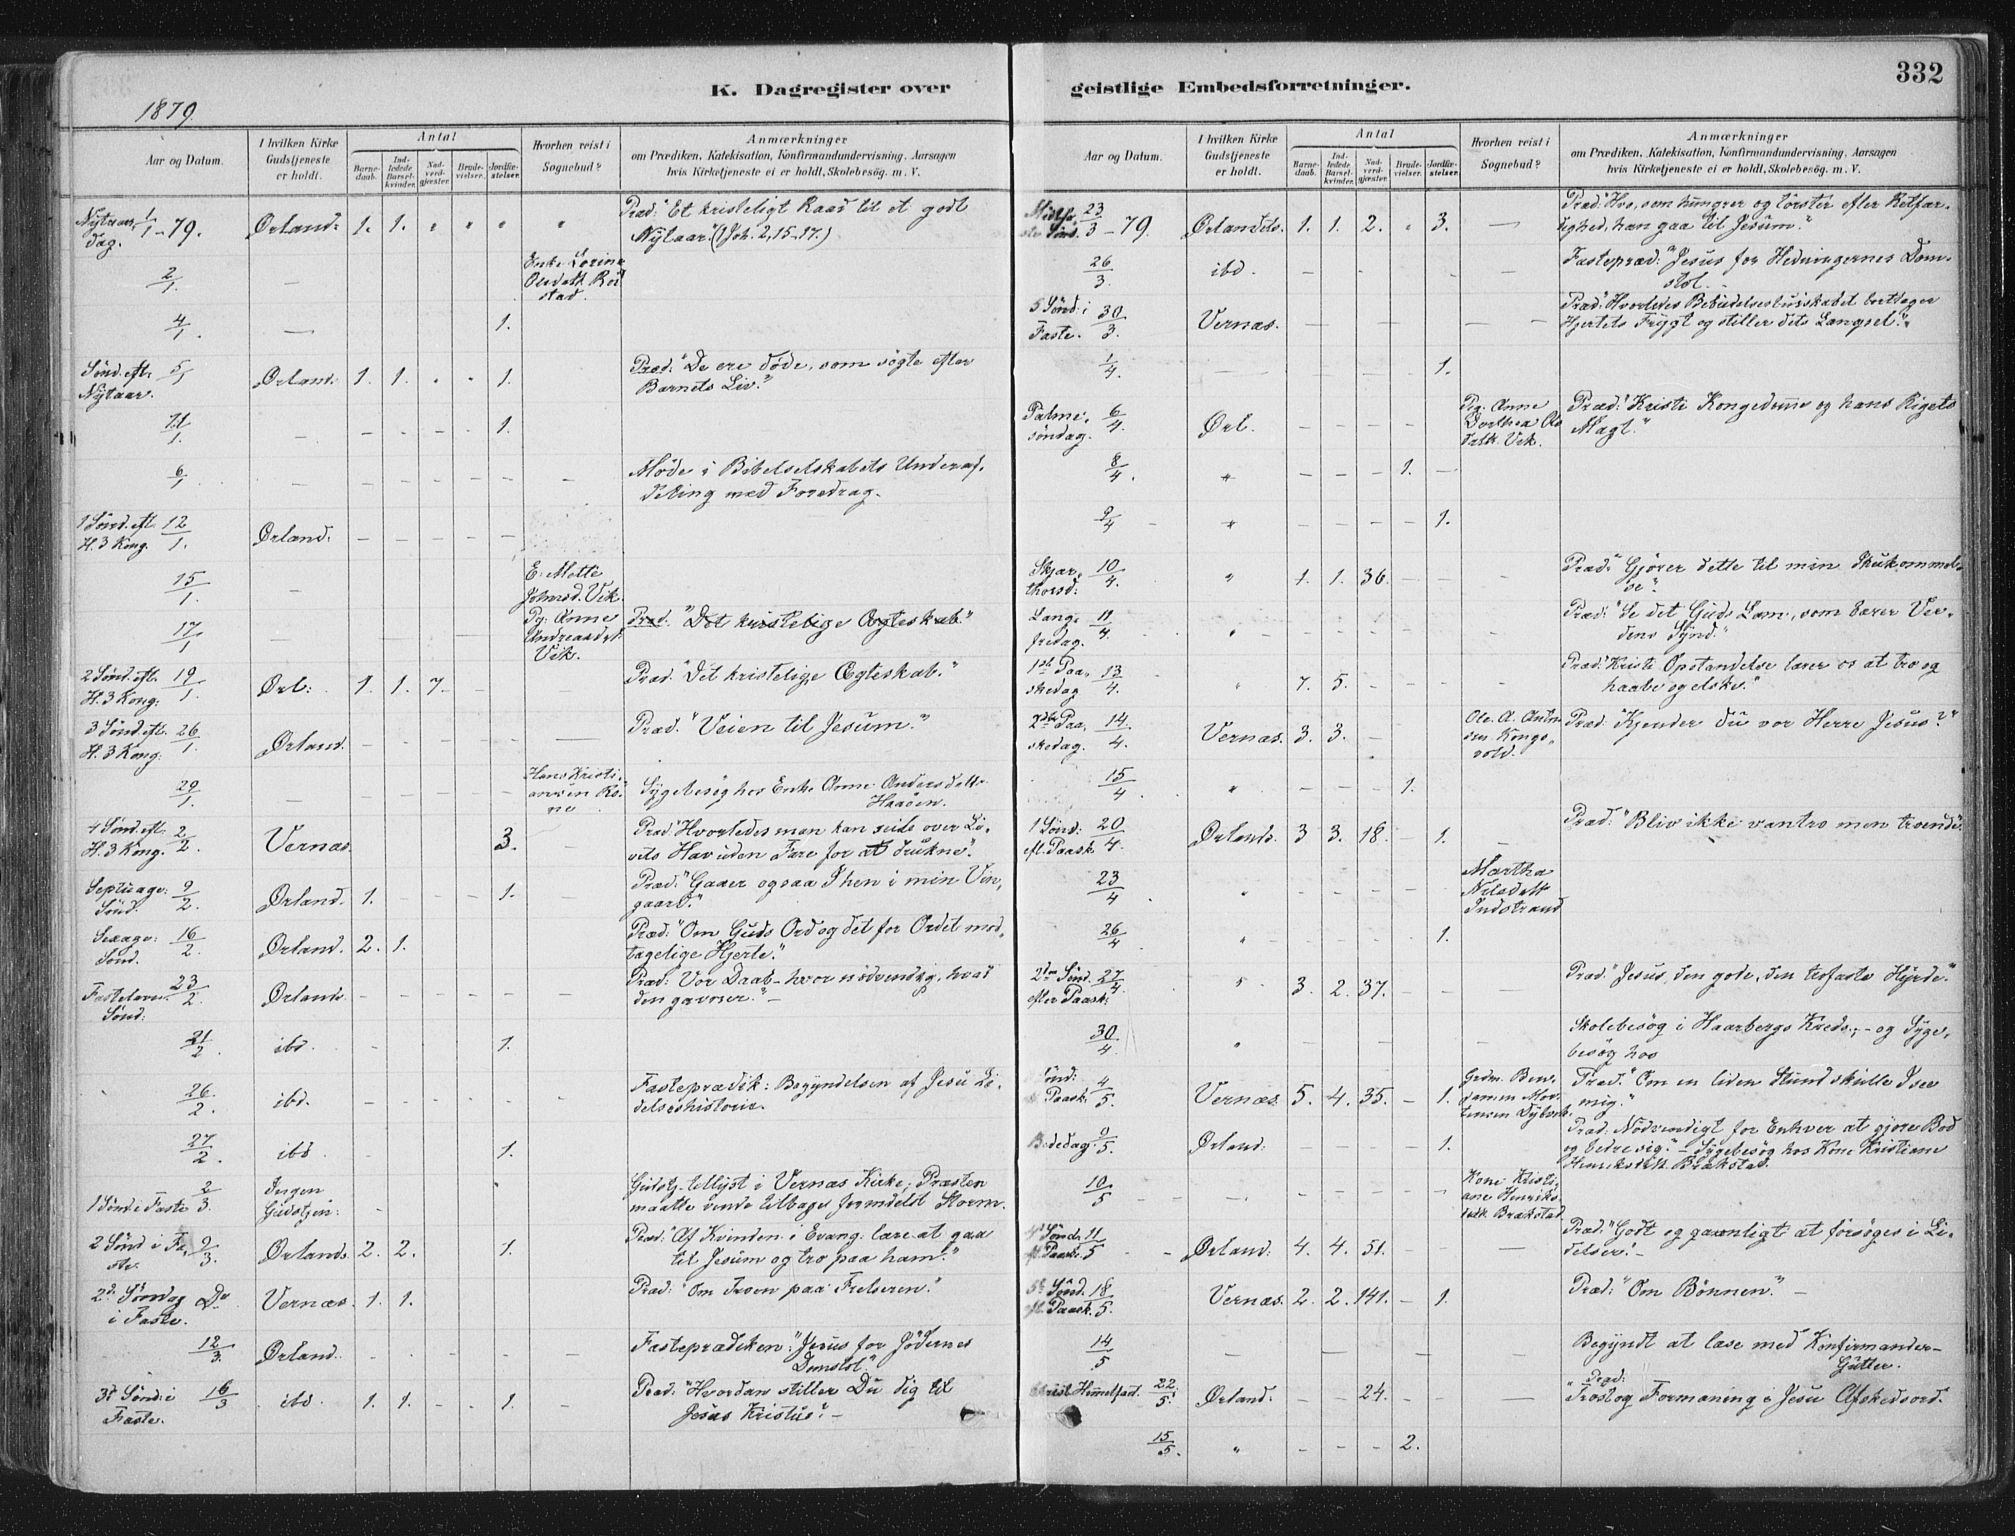 K. Dagregister over
1879.
Aar og Datum.
I hvilken Kirke Gudstjeneste er holdt.
Antal
Barnedaab.
Indledede Barselkvinder.
Nadverdgjæster.
Brudevielser.
Jordfæstelser.
Hvorhen reist i Sognebud?
Anmærkninger
om Prædiken, Katekisation, Konfirmandundervisning, Aarsagen
hvis Kirketjeneste ei er holdt, Skolebesög. m. V.
Nytaarsdag. 1/1-79. Ørland. 1. 1. " " " " Præd: "Et kristeligt Raad til et godt
Nytaar. (1 Joh. 2, 15-17.)
2/1 — Enke
Olsdatt.
4/1. — 1.
Sönd. eft. Nytaar. 5/1 Ørland. 1. 1. . . 1. Præd. "De ere döde, som sögte efter
Barnets Liv."
11/1 - - - - - 1.
6/1 Möde i Bibelselskabets Underaf-
deling med Foredrag.
1 Sönd. eft. H. 3 Kong. 12/1. Ørland. - - - - -
15/1. — E: Mette
Johnsd. Vik.
17/1 Pg: Anne
Andreasdt.
Vik. Præd. "Det kristelige Ægteskab."
2 Sönd. eft. H. 3 Kong: 19/1 Ørl: 1. 1. 7. - Præd. "Det kristelige Ægteskab."
3 Sönd. eft. H. 3 Kong: 26/1 Ørland. - - - - - Præd. "Veien til Jesum."
29/1. Hans Kristi-
ansen
Sygebesög hos Enke Anne Andersdatt.
4 Sönd. eft. H. 3 Kong. 2/2. Vernæs. 3. - Præd "Hvorledes man kan seile over Li-
vets Hav uden Fare for at drukne."
Septuage: Sönd. 9/2. Ørland. 1. - - - 1. Præd: "Gaaer ogsaa I hen i min Vin-
gaard."
Sexage: Sönd. 16/2. Ørland. 2. 1. Præd: "Om Guds Ord og det for Ordet mod-
tagelige Hjerte."
Fastelavn. Sönd: 23/2. Ørland. - - - - - Præd: "Vor Daab - hvor nödvendig, hvad
den gavner." -
21/2. ibd. - 1.
26/2. ibd. - Fasteprædik: Begyndelsen af Jesu Li-
delseshistorie.
27/2. ibd. - 1.
1 Sönd i Faste 2/3. Ingen Gudstjen: - Gudstj. tillyst i Vernæs Kirke; Præsten
maatte vende tilbage formedelst Storm.
2 Sönd i Faste. 9/3. Ørland. 2. 2. 1. Præd: "Af Kvinden i Evang: lære at gaa
til Jesum og tro paa ham."
2d Söndag i Faste. Do Vernæs. 1. 1. Præd: "Om Troen paa Frelseren."
12/3. Ørland. - - - - - - Fasteprædiken: "Jesus for Jödernes
Domstol."
3d Sönd: i Faste. 16/3 ibd. 1. 1. - - 1. - Præd: "Hvordan stiller Du dig til
Jesus Kristus." -
geistlige Embedsforretninger.
332
Aar og Datum.
I hvilken Kirke Gudstjeneste er holdt.
Antal
Barnedaab.
Indledede Barselkvinder.
Nadverdgjæster.
Brudevielser.
Jordfæstelser.
Hvorhen reist i Sognebud?
Anmærkninger
om Prædiken, Katekisation, Konfirmandundervisning, Aarsagen
hvis Kirketjeneste ei er holdt, Skolebesög. m. V.
23/3-79. Ørlandets. 1. 1. 2. . 3. — Præd: "Hvo, som hungrer og törster efter Retfær-
dighed, han gaa til Jesum."
26/3. ibd. - - - - - - Fastepræd: "Jesus for Hedningernes Dom-
stol. -
5 Sönd: i Faste. 30/3. Vernæs. - - - - - — Præd: "Hvorledes Bebudelsesbudskabet borttager
Hjertets Frygt og stiller dets Længsel."
1/4. — 1.
Palme-söndag. 6/4. Ørl. - - - - - Pg. Anne
Dorthea
Vik. Præd: "Kristi Kongedömme og hans Riges
Magt."
8/4. " - - - 1. -
9/4 - " 1.
Skjær-thorsd: 10/4. " 1. 1. 36. - - - Præd: "Gjörer dette til min Ihukommel-
se."
Lang-fredag. 11/4. " - - - - - - Præd: "Se det Guds Lam, som bærer Ver-
dens Synd."
1ste Paa-skedag 13/4. " 7. 5. - - - - Præd: "Kristi Opstandelse lærer os at tro og
haabe og elske."
2den Paa-skedag. 14/4. Vernæs. 3. 3. - Ole. A. Andr
sen Kongs-
vold. Præd: "Kjender du vor Herre Jesus?"
15/4. " - - - 1.
1 Sönd: eft. Paask. 20/4. Ørland. 3 3. 18. - 1. - Præd: "Bliv ikke vantro men troende."
23/4. " - - - - - Martha
Nilsdatt
Indstrand
26/4 " - - - - 1.
2den Sönd. efter Paask: 27/4. " 3. 2. 37. - - - Præd: "Jesus, den gode, den trofaste Hyrde."
30/4. " - - - - - - Skolebesög i Haarbergs Kreds; - og Syge-
besög hos
Sönd: Paask. 4/5. Vernæs. 5. 4. 35. - 1. Gdm. Ben-
jamin Mor-
tensen Præd: "Om en liden Stund skulle I see
mig."
Bededag. 9/5. Ørland: - - - - 1. Præd: Nödvendigt for Enhver at gjöre Bod
og bedre sig." - Sygebesög hos Kone Kristiane
Henriksdtt. Brækstad.
10/5 - - - - - - Kone Kristi-
ane Henriks-
datt. Brækstad.
4d Sönd: eft. Paask: 11/5 Ørland: 4. 4. 51. - - — Præd: "Godt og gavnligt at forsöges i Li-
delser." -
5t Sönd. eft. Paask. 18/5. Vernæs. 2. 2. 141. - 1. Præd: "Om Bönnen." -
14/5 - - - - - - Begyndt at læse med Konfirmander -
Gutter.
Himmelfard. 22/5. Ørland. - - 24. - - — Præd:
"Tröst og Formaning i Jesu Afskedsord."
15/5. " - - - 2.